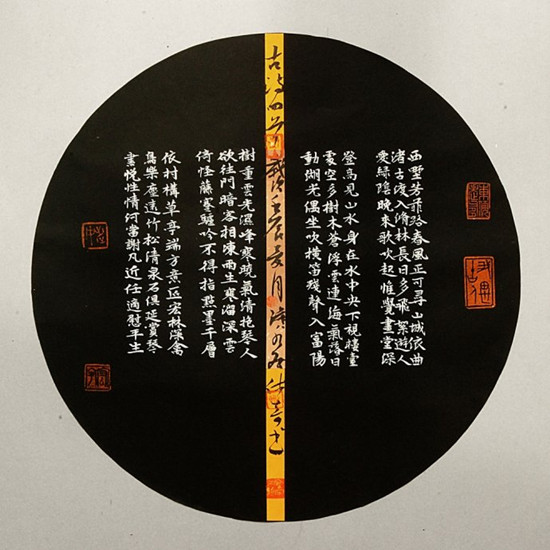 西墅芳菲路春風正可尋山城依曲
渚古渡入修林長日多飛絮遊人
愛綠陰晚來歌吹起惟覺畫堂深
登高見山水身在水中央下視樓臺
處空多樹木蒼浮雲連海氣落日
動湖光偶坐吹橫笛殘聲入富陽
古詩四首歲壬辰夏月
樹重雲光濕峰寒曉氣清抱琴人
欲往門暗客相陳雨生寒溜深雲
倚怪藤寒驢吟不得指點墨千層
依村構草亭端方意匠宏林深禽
鳥樂塵遠竹松清泉石供延賞琴
書悅性情何當謝凡近任適慰平生